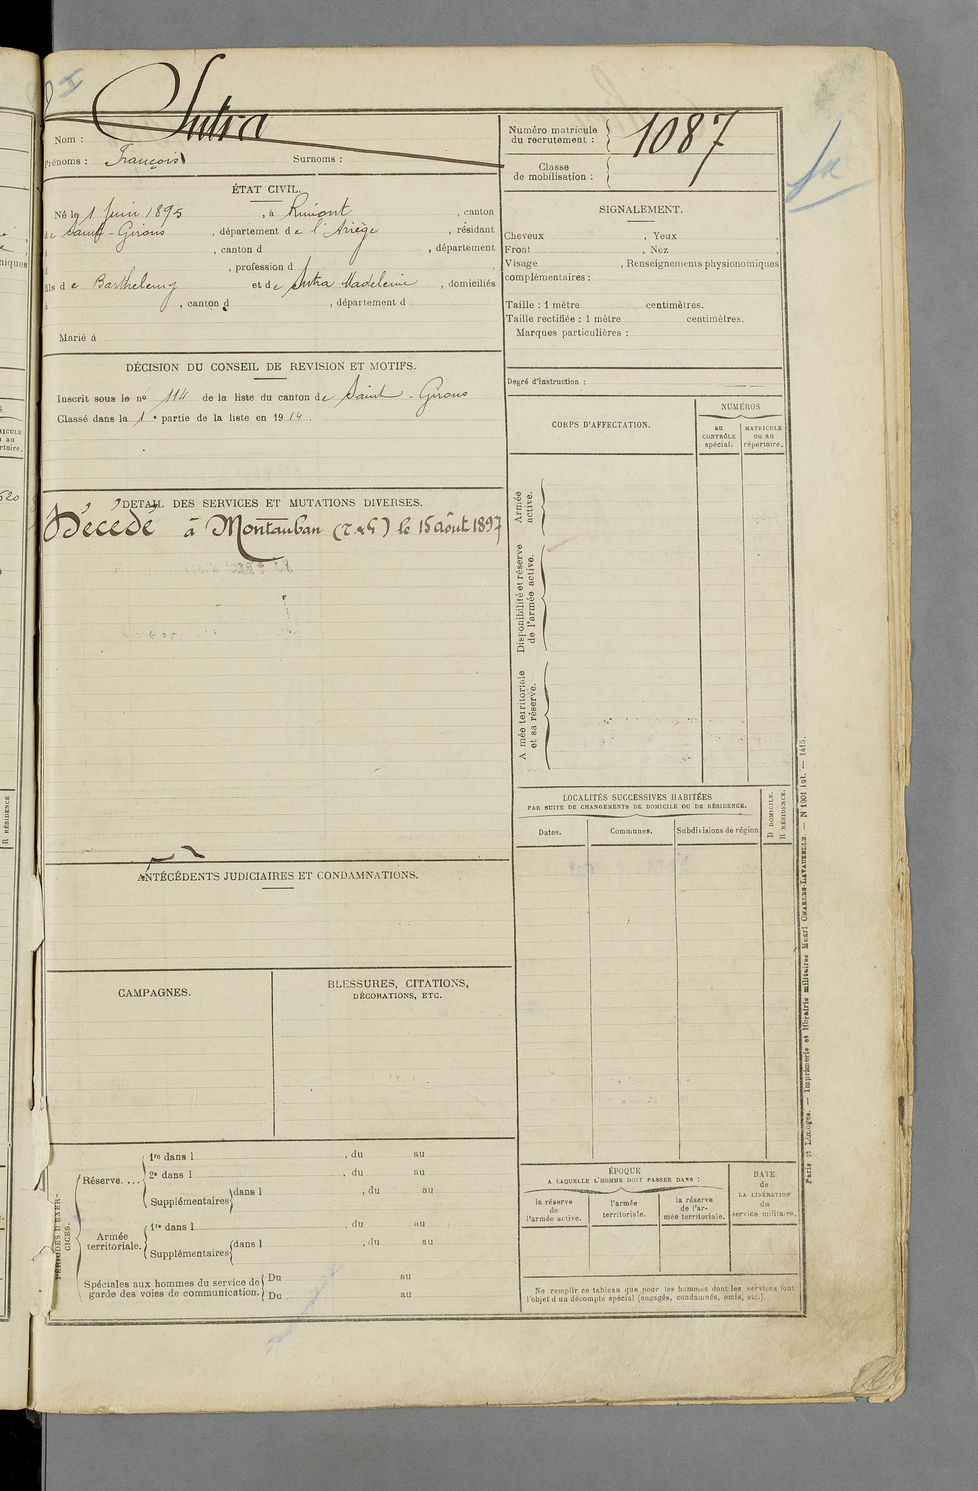 Sutra
Nom :
Prénoms : François Surnoms :
Numéro matricule
du recrutement :
1087
Classe
de mobilisation :
ÉTAT CIVIL.
Né le 1 Juin 1895, à Rimont, canton
de Saint-Girons, département de l'Ariège, résidant
, canton d , département
, profession d ,
fils de Barthelemy et de Sutra Madeleine, domiciliés
à , canton d , département d
Marié à
SIGNALEMENT.
Cheveux , Yeux ,
Front , Nez
Visage , Renseignements physionomiques
complémentaires :
Taille : 1 mètre centimètres.
Taille rectifiée : 1 mètre centimètres.
Marques particulières :
DÉCISION DU CONSEIL DE REVISION ET MOTIFS.
Inscrit sous le nº 114 de la liste du canton de Saint-Girons
Classé dans la 1e partie de la liste en 1914.
Degré d'instruction :
CORPS D'AFFECTATION.
NUMÉROS
au
CONTRÔLE
spécial.
MATRICULE
ou au
répertoire.
Armée
active.
Disponibilité et réserve
de l'armée active.
A mée territoriale
et sa réserve.
DÉTAIL DES SERVICES ET MUTATIONS DIVERSES.
Décédé à Montauban (T & G) le 15 août 1897
LOCALITÉS SUCCESSIVES HABITÉES
PAR SUITE DE CHANGEMENTS DE DOMICILE OU DE RÉSIDENCE.
Dates. Communes. Subdivisions de région
D DOMICILE.
R RÉSIDENCE.
ANTÉCÉDENTS JUDICIAIRES ET CONDAMNATIONS.
CAMPAGNES.
BLESSURES, CITATIONS,
DÉCORATIONS, ETC.
PÉRIODES D'EXER-
CICES.
Réserve. ...
1re dans l , du au
2e dans l , du au
Supplémentaires dans l , du au
Armée
territoriale.
1re dans l , du au
Supplémentaires dans l , du au
Spéciales aux hommes du service de
garde des voies de communication.
Du au
Du au
ÉPOQUE
A LAQUELLE L'HOMME DOIT PASSER DANS :
la réserve
de
l'armée active.
l'armée
territoriale.
la réserve
de l'ar-
mée territoriale.
DATE
de
LA LIBÉRATION
du
service militaire.
Ne remplir ce tableau que pour les hommes dont les services font
l'objet d'un décompte spécial (engagés, condamnés, omis, etc.).
Paris et Limoges. — Imprimerie et librairie militaires Henri CHARLES-LAVAUZELLE. — N 1001 int. — 1415.
R RÉSIDENCE